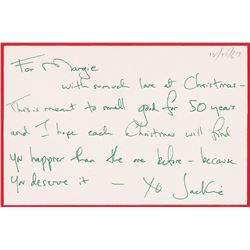 For Margie
12/25/67
with so much love at Christmas –
This is meant to smell good for 50 years
and I hope each Christmas will find
you happier than the one before – because
you deserve it – XO Jackie